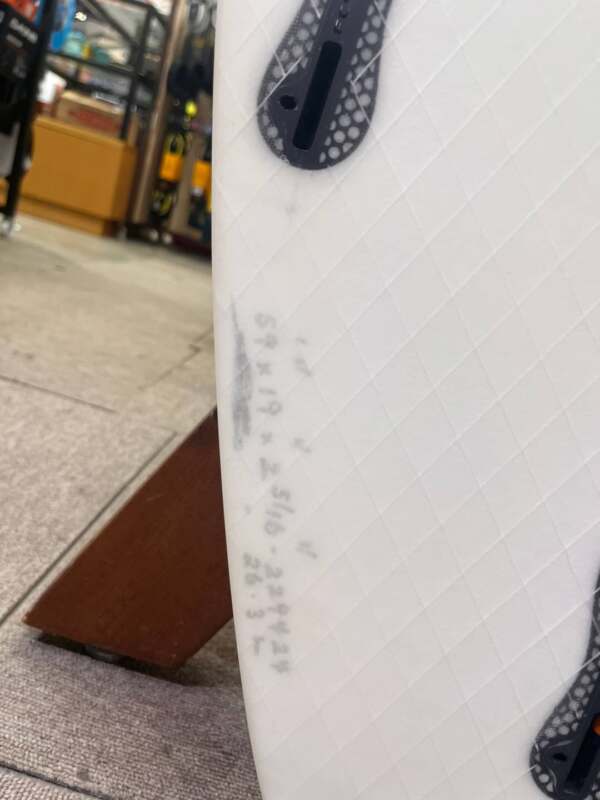 5'9" x 19" x 2 5/16" - 2294424
26.3 L